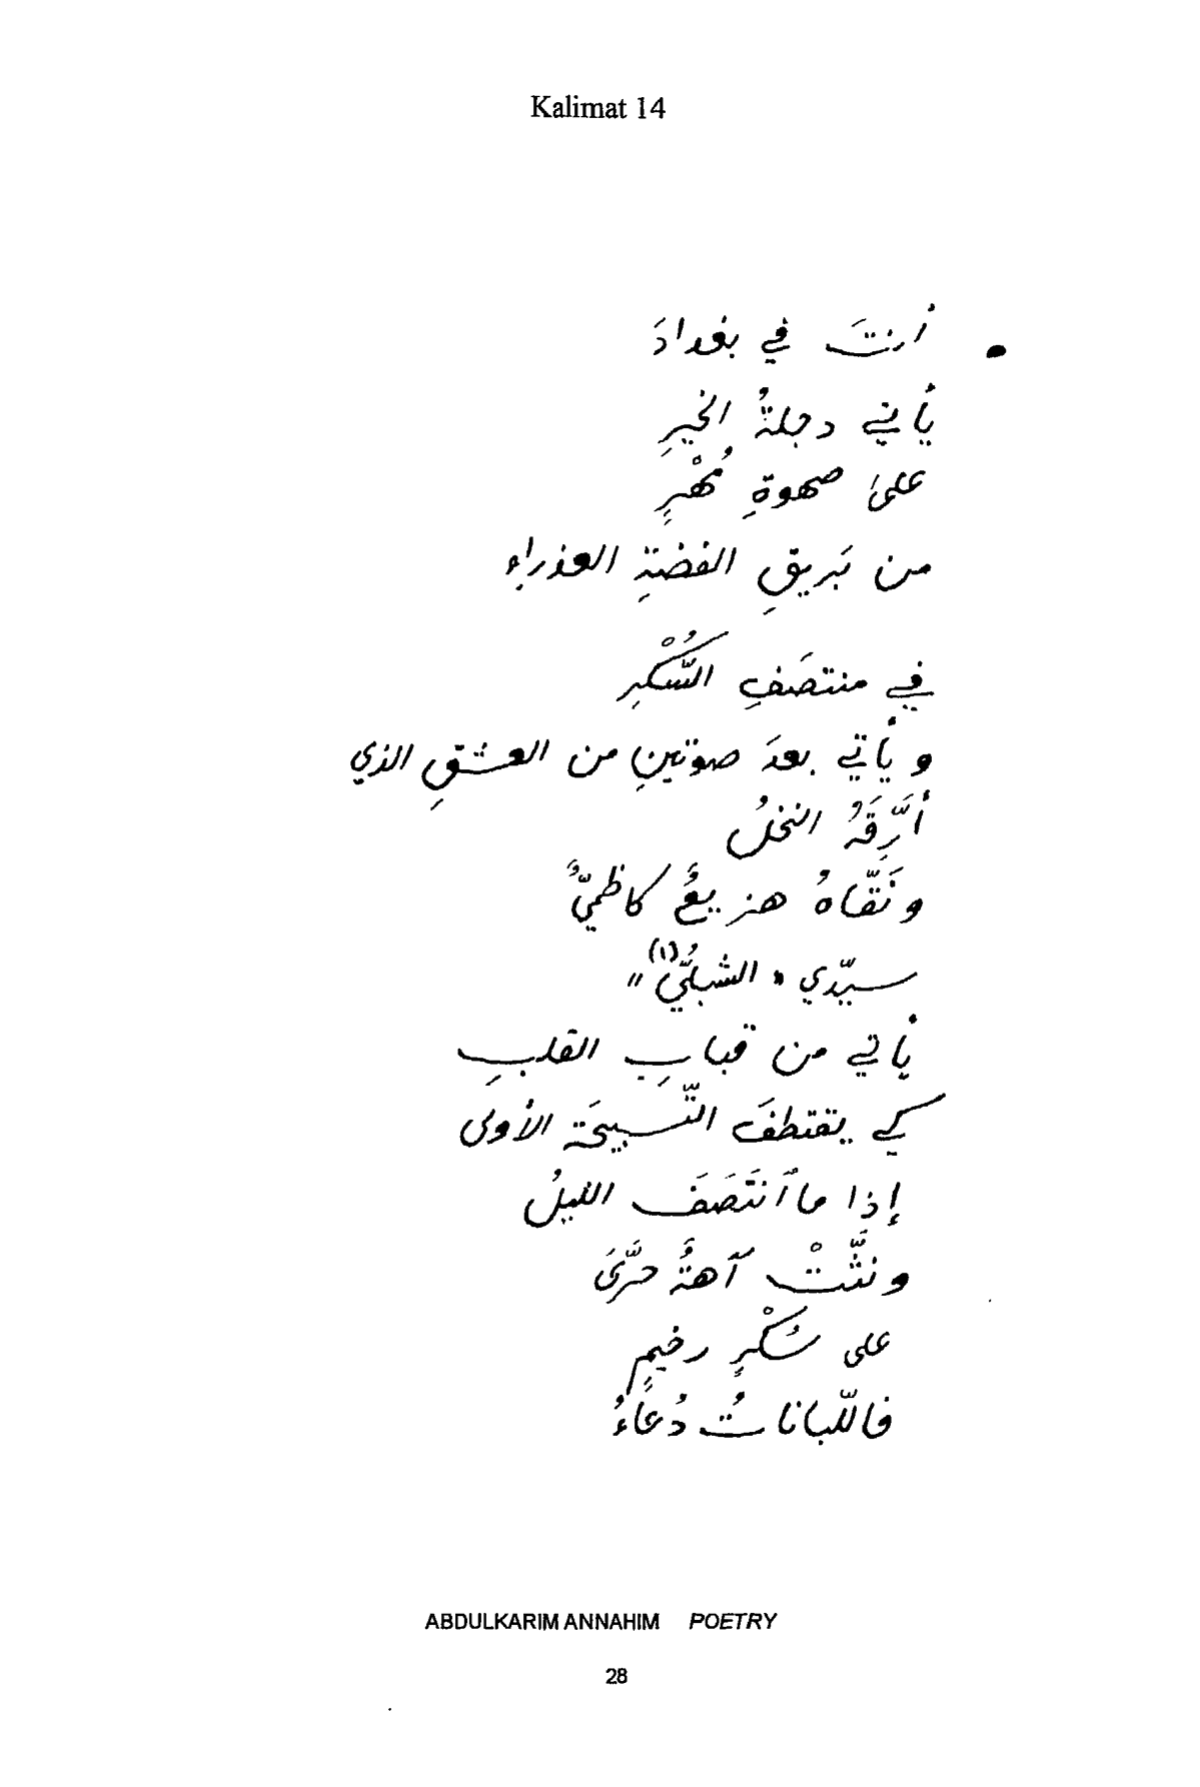 Kalimat 14
• أنتَ في بغدادَ
يأتي دجلةُ الخيرِ
على صهوةِ مُهْرٍ
من بَريقِ الفضةِ العذراءِ
في منتصَفِ السُّكْرِ
ويأتي بعدَ صوتينِ من العشقِ الذي
أرَّقَهُ النخلُ
ونَقّاهُ هزيعٌ كاظميٌّ
سيّدي «الشبليُّ(١)»
يأتي من قبابِ القلبِ
كي يقتطفَ التّسبيحَةَ الأولى
إذا ما ٱنتَصَفَ الليلُ
ونثَّتْ آهةٌ حرَّىَ
على سُكْرٍ رخيمٍ
فاللّباناتُ دُعاءُ
ABDULKARIM ANNAHIM POETRY
28